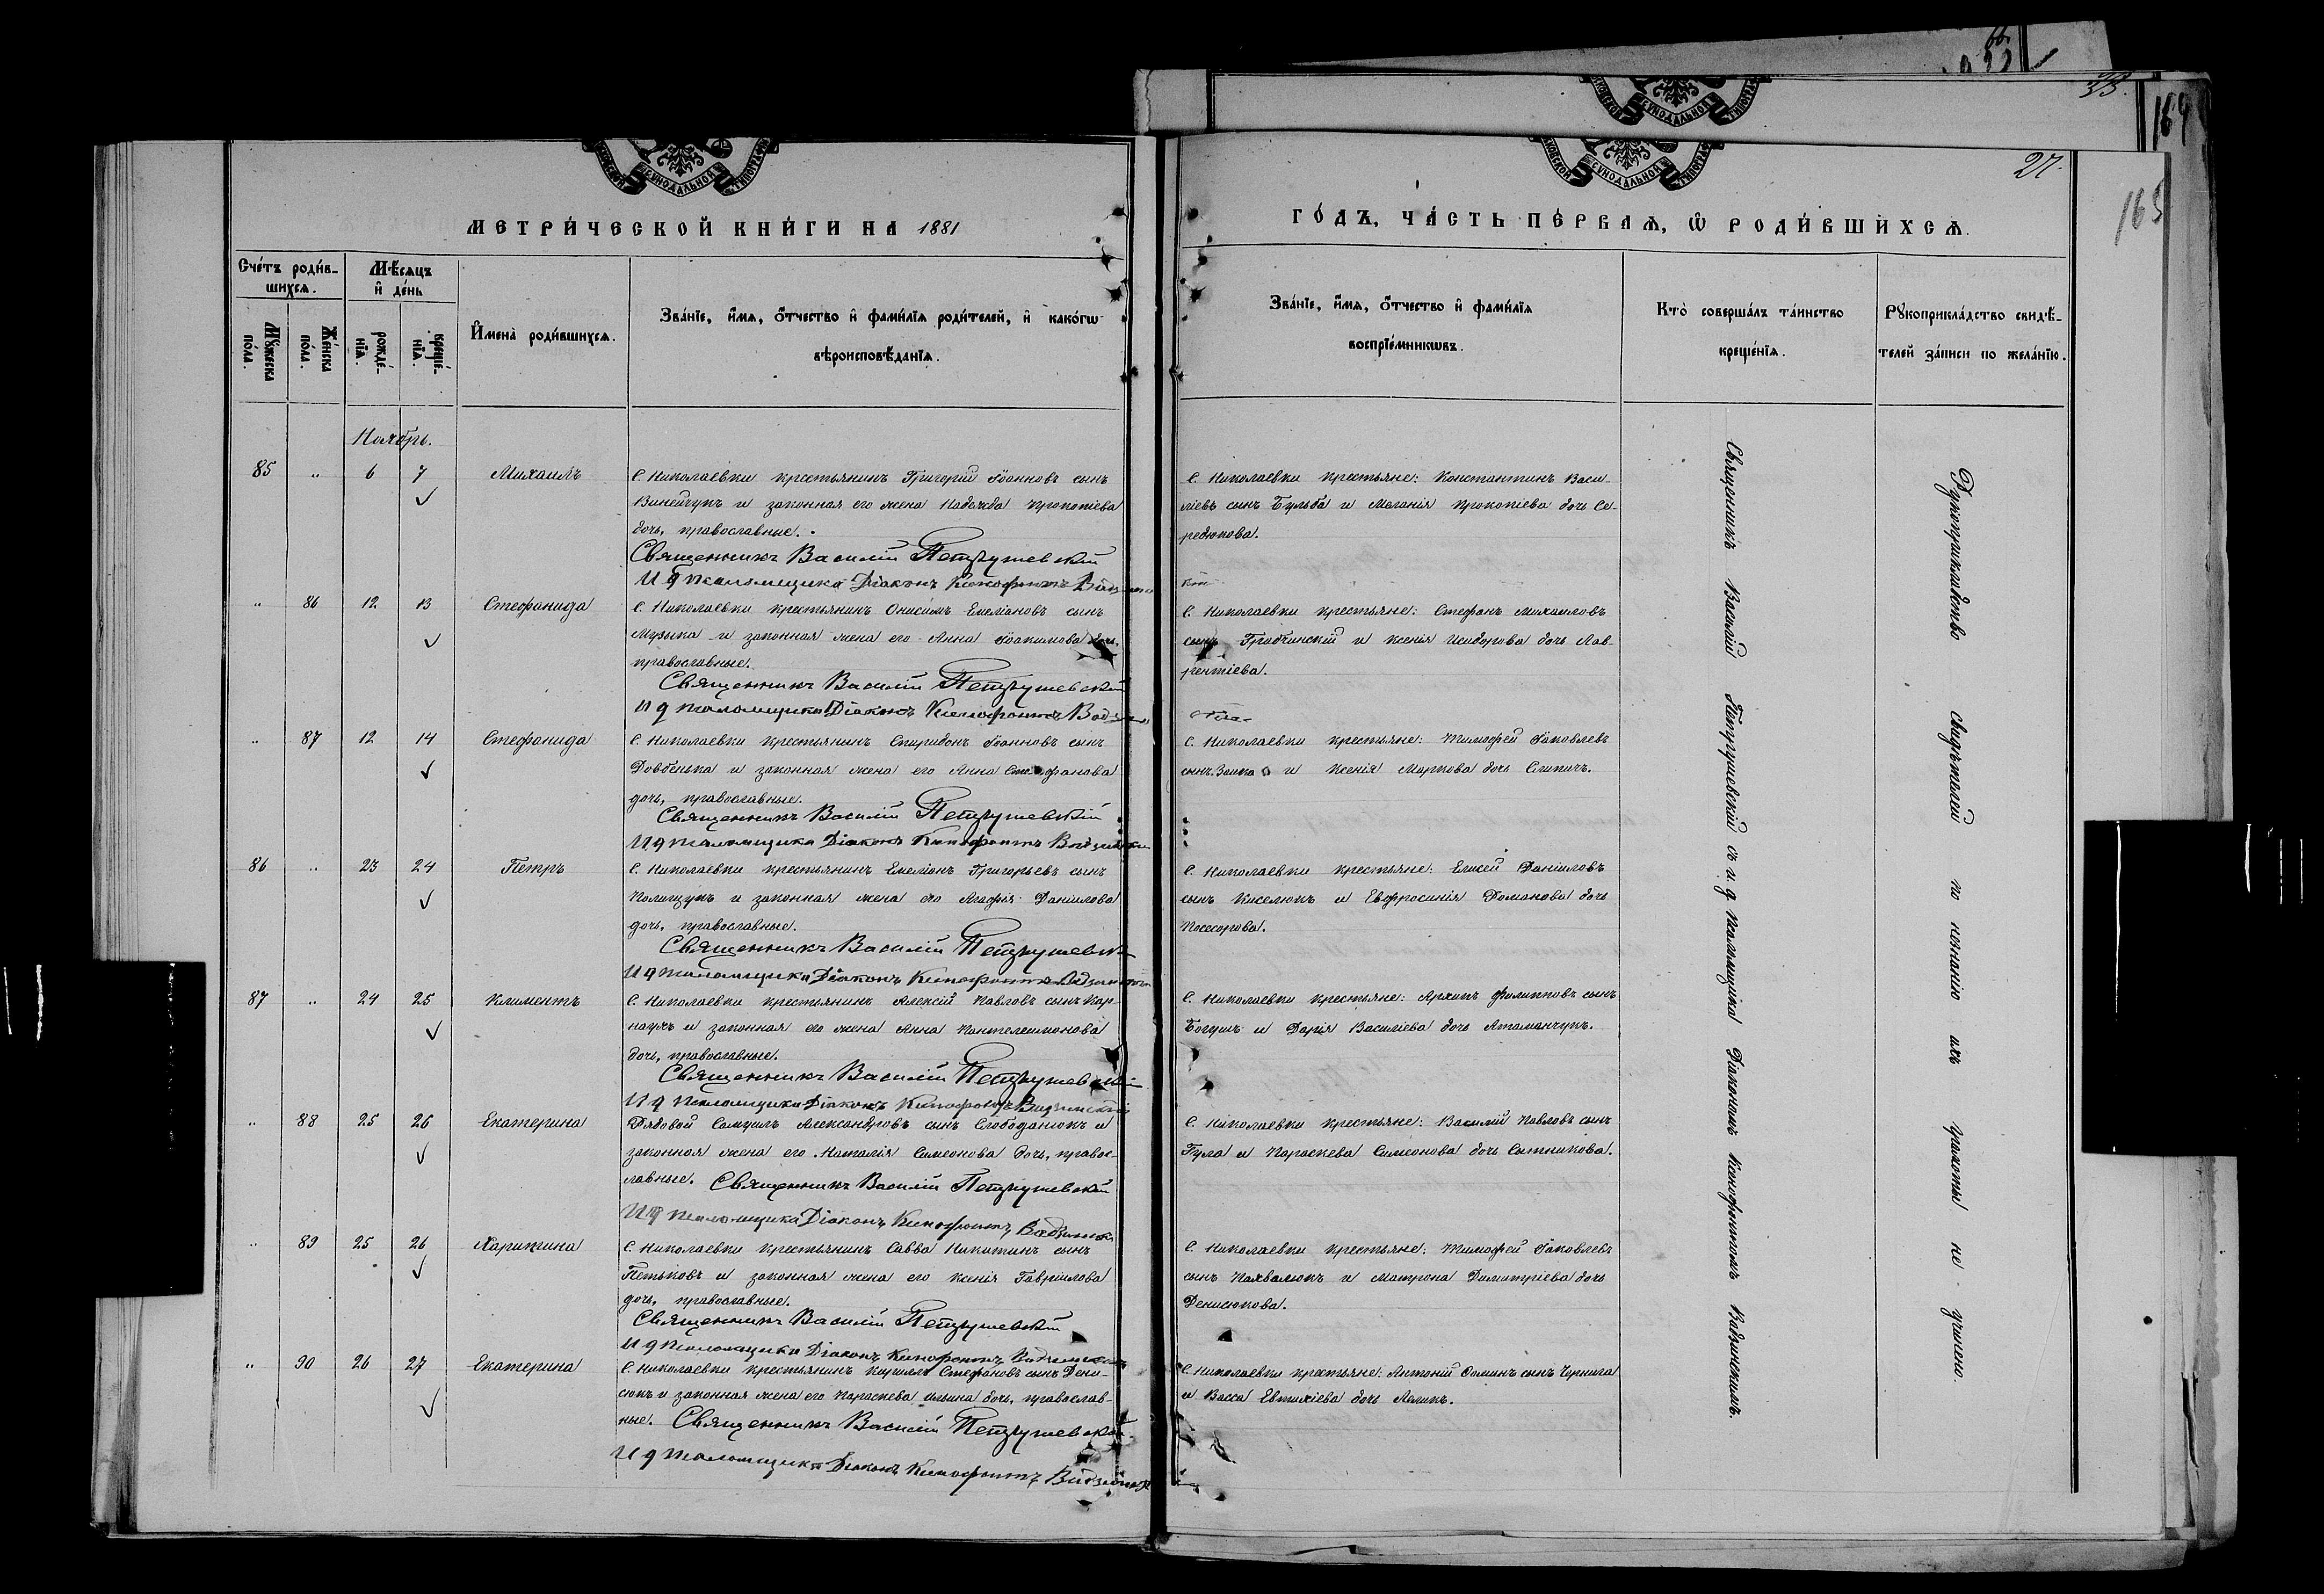 66.
33.
169
МОСКОВСКОЙ СѴНОДАЛЬНОЙ ТИПОГРАФІИ
27.
165
МЕТРИ́ЧЕСКОЙ КНИ́ГИ НА 1881
ГО́ДЪ, ЧА́СТЬ ПЕ́РВАѦ, Ѿ РОДИ́ВШИХСѦ.
Сче́тъ роди́в-
шихсѧ.
Мѣ́сѧцъ
и҆ де́нь
Мꙋ́жеска
по́ла.
Же́нска
по́ла.
рожде́-
нїѧ.
креще́-
нїѧ.
И҆мена̀ роди́вшихсѧ.
Зва́нїе, и҆́мѧ, ѻ҆́тчество и҆ фами́лїѧ роди́телей, и҆ како́гѡ
вѣроисповѣ́данїѧ.
Зва́нїе, и҆́мѧ, ѻ҆́тчество и҆ фами́лїѧ
воспрїе́мникѡвъ.
Кто̀ соверша́лъ та́инство
креще́нїѧ.
Рꙋкоприкла́дство свидѣ́-
телей за́писи по жела́нїю.
Ноябрь.
85 „ 6 7 Михаилъ
С. Николаевки крестьянинъ Григорій Іоанновъ сынъ
Винейчукъ и законная его жена Надежда Прокопіева
дочь, православные.
Священникъ Василій Петрушевскій
И д псаломщика Діаконъ Ксенофонтъ
С. Николаевки крестьяне: Константинъ Васи-
ліевъ сынъ Бульба и Меланія Прокопіева дочь Се-
редюкова.
„ 86 12 13 Стефанида
С. Николаевки крестьянинъ Онисимъ Емеліановъ сынъ
Музыка и законная жена его Анна Іоакимова дочь,
православные.
Священникъ Василій Петрушевскій
И д псаломщика Діаконъ Ксенофонтъ
С. Николаевки крестьяне: Стефанъ Михаиловъ
сынъ Грабчинскій и Ксенія Исидорова дочь Лав-
рентіева.
„ 87 12 14 Стефанида
С. Николаевки крестьянинъ Спиридонъ Іоанновъ сынъ
Довбенька и законная жена его Анна Стефанова
дочь, православные.
Священникъ Василій Петрушевскій
И д псаломщика Діаконъ Ксенофонтъ
С. Николаевки крестьяне: Тимофей Іаковлевъ
сынъ Заика и Ксенія Маркова дочь Слипичъ.
86 „ 23 24 Петръ
С. Николаевки крестьянинъ Емеліанъ Григорьевъ сынъ
Полищукъ и законная жена его Агафія Даніилова
дочь, православные.
Священникъ Василій Петрушевскій
И д псаломщика Діаконъ Ксенофонтъ
С. Николаевки крестьяне: Елисей Даніиловъ
сынъ Киселюкъ и Евфросинія Романова дочь
Посесорова.
87 „ 24 25 Климентъ
С. Николаевки крестьянинъ Алексій Павловъ сынъ Кар-
наухъ и законная его жена Анна Пантелеимонова
дочь, православные.
Священникъ Василій Петрушевскій
И д псаломщика Діаконъ Ксенофонтъ
С. Николаевки крестьяне: Архипъ Филипповъ сынъ
Богушъ и Дарія Василіева дочь Атаманчукъ.
„ 88 25 26 Екатерина
Рядовой Самуилъ Александровъ сынъ Слободанюкъ и
законная жена его Наталія Симеонова дочь, правос-
лавные. Священникъ Василій Петрушевскій
И д псаломщика Діаконъ Ксенофонтъ
С. Николаевки крестьяне: Василій Павловъ сынъ
Гула и Параскева Симеонова дочь Ситникова.
„ 89 25 26 Харитина
С. Николаевки крестьянинъ Савва Никитинъ сынъ
Петьковъ и законная жена его Ксенія Гавріилова
дочь, православные.
Священникъ Василій Петрушевскій
И д псаломщика Діаконъ Ксенофонтъ
С. Николаевки крестьяне: Тимофей Іаковлевъ
сынъ Пахвалюкъ и Матрона Димитріева дочь
Денисюкова.
„ 90 26 27 Екатерина
С. Николаевки крестьянинъ Кириллъ Стефановъ сынъ Дени-
сюкъ и законная жена его Параскева Ильина дочь, православ-
ные. Священникъ Василій Петрушевскій
И д псаломщика Діаконъ Ксенофонтъ
С. Николаевки крестьяне: Антоній Ѳоминъ сынъ Чернига
и Васса Евтихіева дочь
Священникъ Василій Петрушевскій съ и. д псаломщика Діакономъ Ксенофонтомъ Вадзинскимъ.
Рукоприкладство свидѣтелей по незнанію ихъ грамоты не учинено.